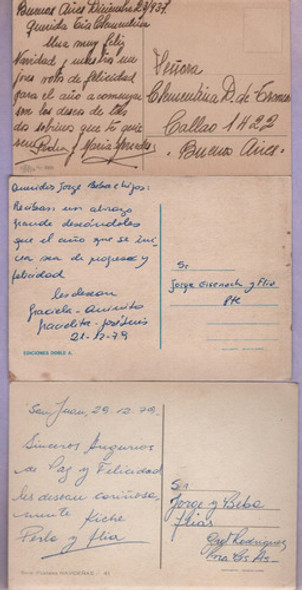 Buenos Aires Diciembre 23/937.
Querida tia Clementina
Una muy feliz
Navidad y nuestro
voto de felicidad
para el año a comenzar
son los deseos de tus
dos sobrinos que te quieren
Pedro y Maria
Señora
Clementina D. de
Callao 1422
Buenos Aires.
Queridos Jorge Beba e hijos:
Reciban un abrazo
grande deseándoles
que el año que se ini-
cia sea de progreso y
felicidad
les desean
Graciela -
Gracielita - José Luis
21-12-79
EDICIONES DOBLE A.
Sr
Jorge y Flia
Pte
San Juan, 29.12.79.
Sinceros Augurios
de Paz y Felicidad
les desean cariñosa
mente Kiche
Perlo y flia
Sr.
Jorge y Beba
flias
Gral Rodriguez
Pcia Bs As
Serie: Postales NAVIDEÑAS